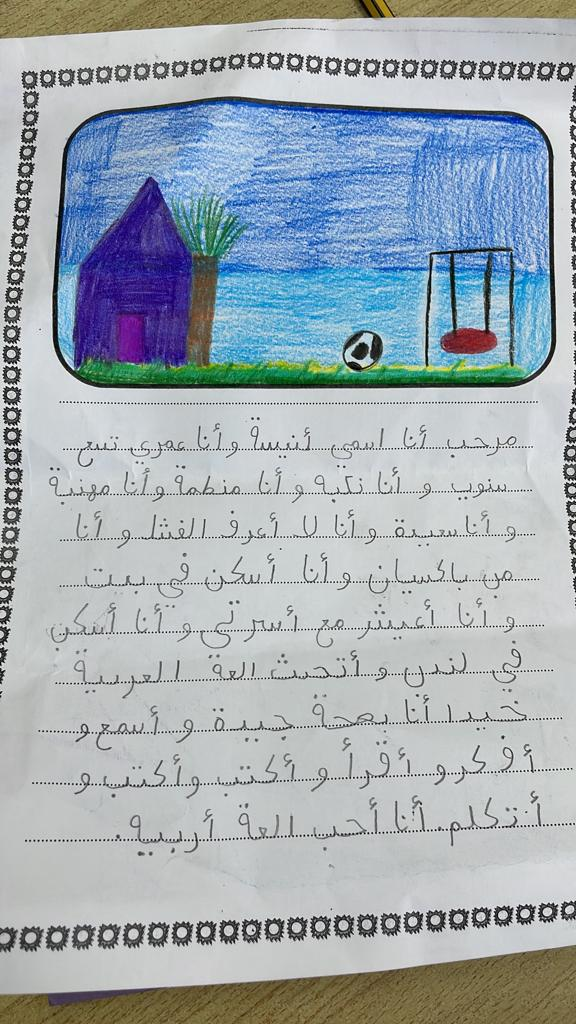 مرحب أنا اسمي أنيسة وأنا عمري تسع
سنوب و أنا نكبة و أنا منظمة وأنا مهنبة
و أنا سعيدة و أنا لا أعرف الفشل و أنا
من باكسان و أنا أسكن في بيت
و أنا أعيش مع أسرتي و أنا أسكن
في لندن و أتحدث العة العربية
خيدا أنا بصحة جيدة و أسمع و
أفكر و أقرأ و أكتب وأكتب و
أتكلم. أنا أحب العة أربية.